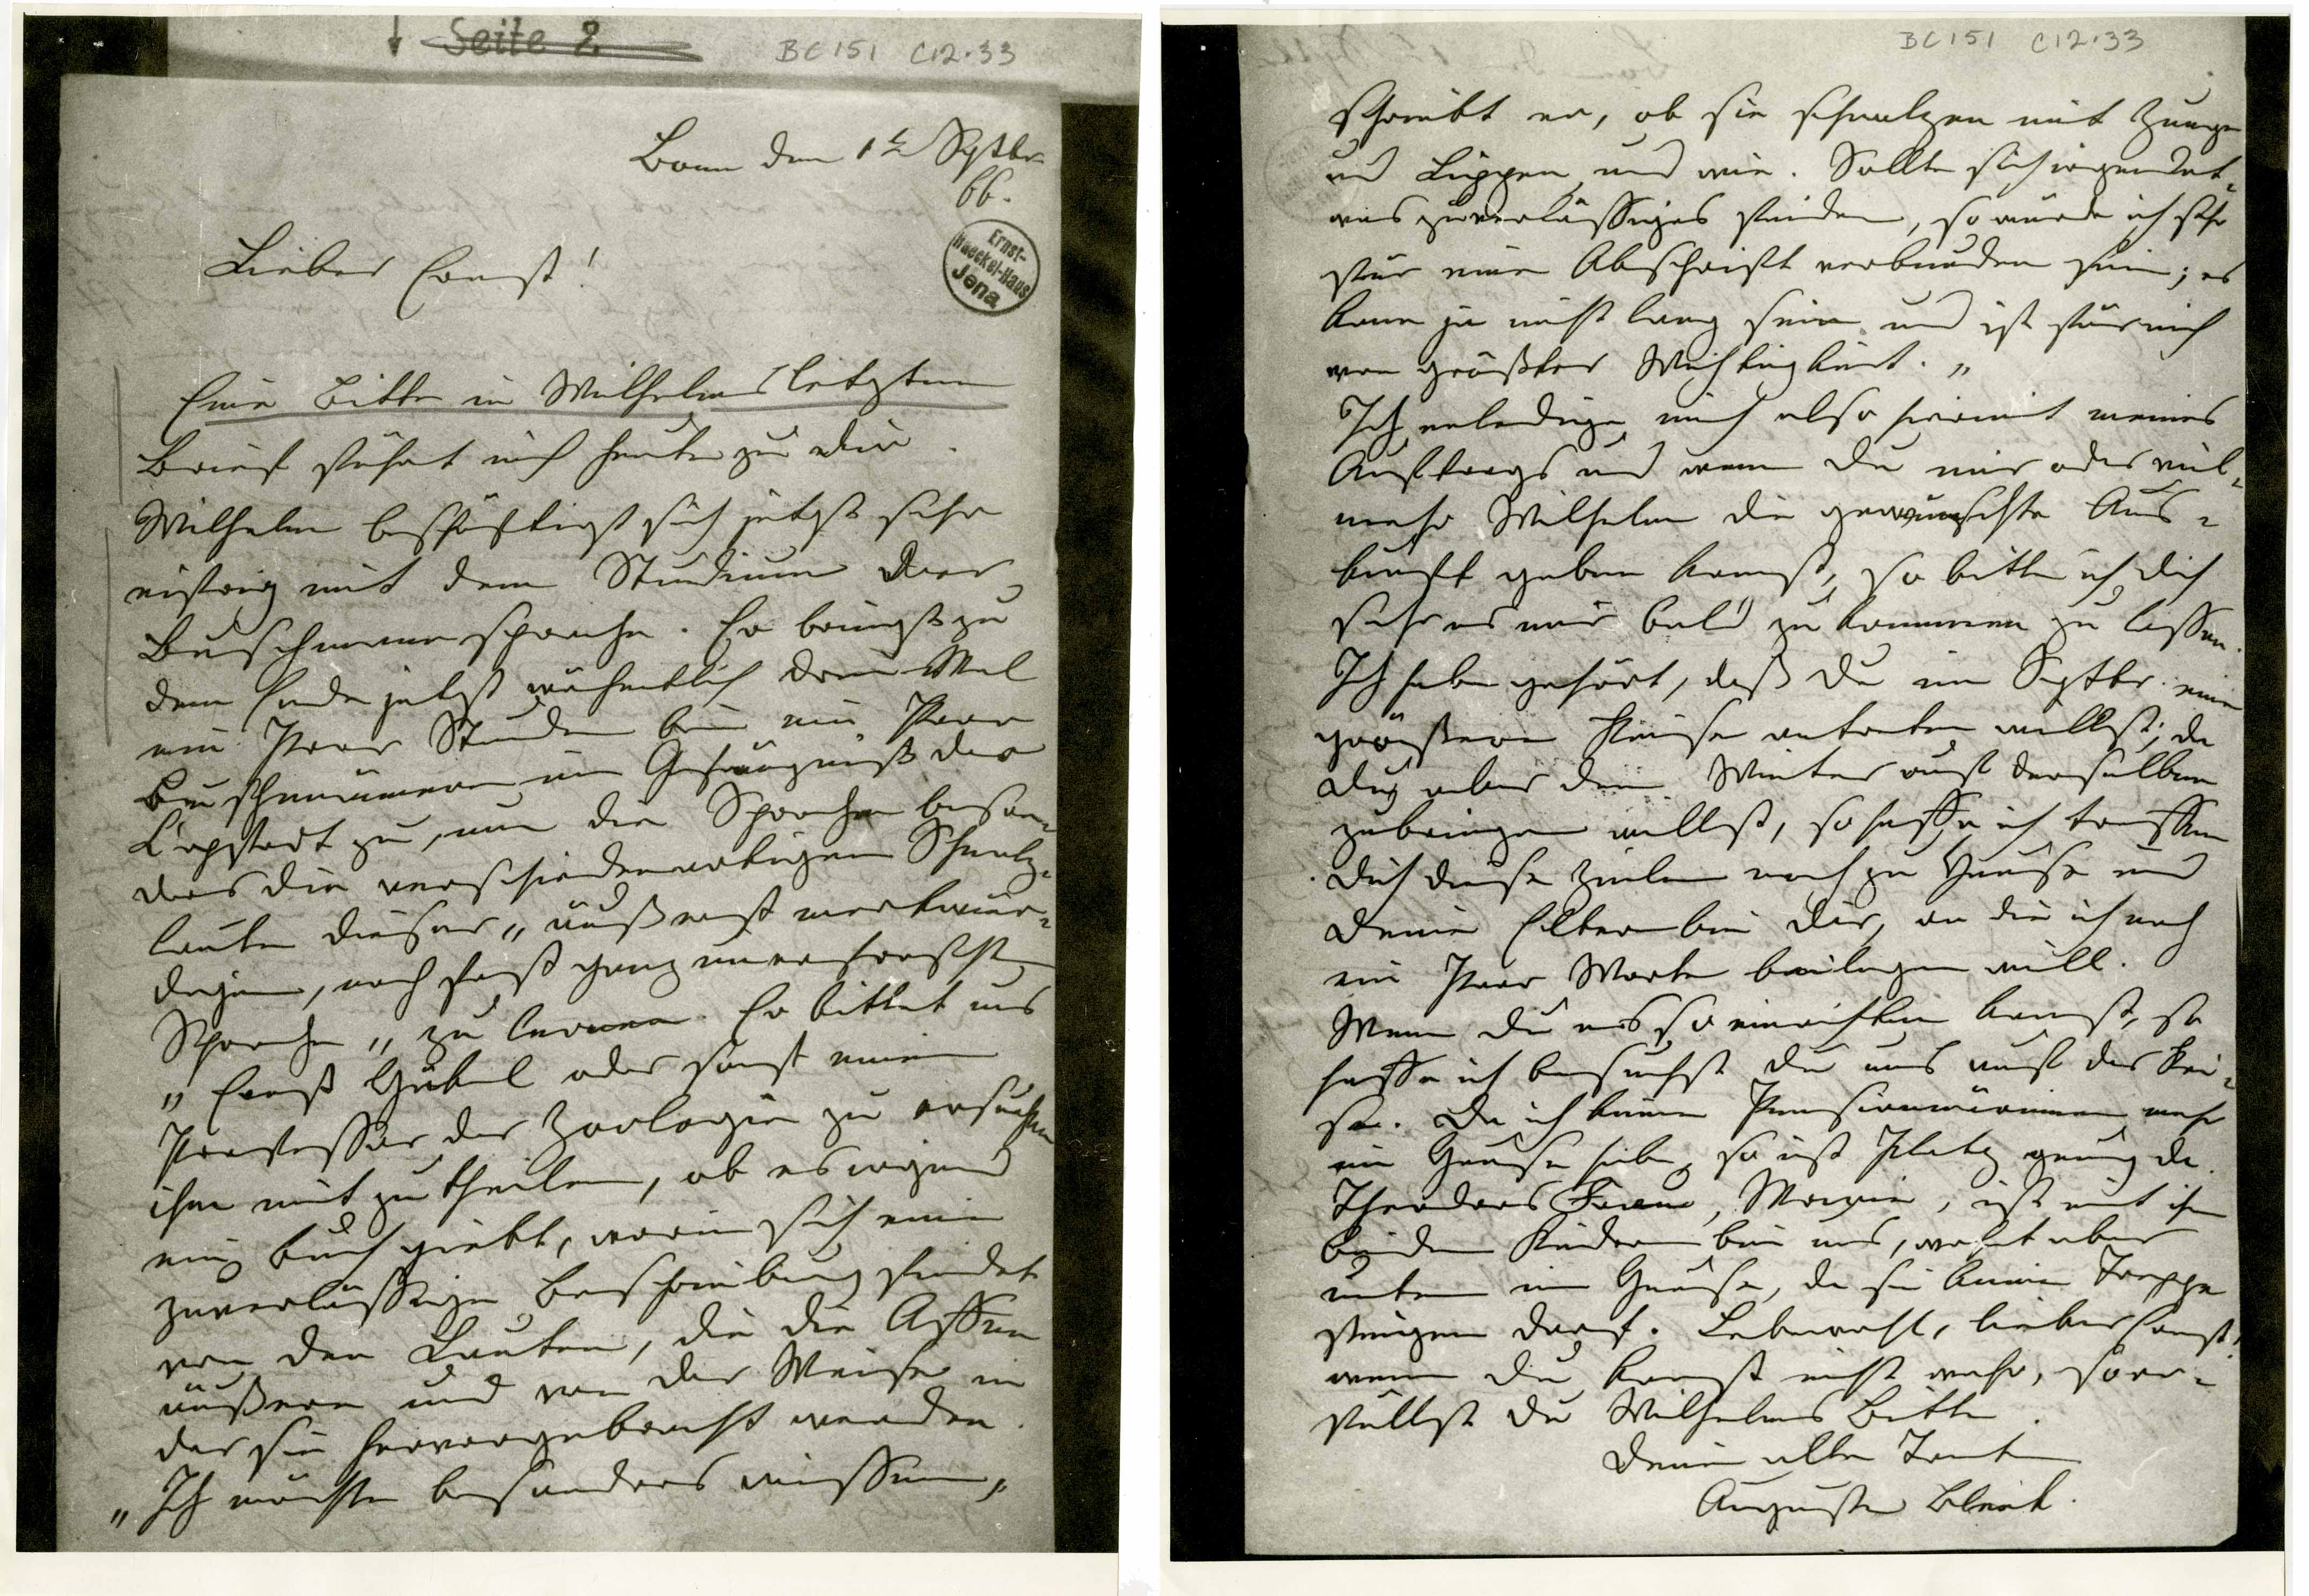 Seite 2
BC151 C12.33
Bonn den 1t Septbr
66.
Lieber Ernst!
Ernst-
Haeckel-Haus
Jena
Eine Bitte in Wilhelms letztem
Brief führt mich heute zu dir.
Wilhelm beschäftigt sich jetzt sehr
eifrig mit dem Studium der
Buschmannsprache. Er bringt zu
dem Ende jetzt wöchentlich drei Mal
ein Paar Stunden bei ein Paar
Buschmännern im Gefängniß der
Capstadt zu, um die Sprache beson-
ders die verschiedenartigen Schnalz-
laute dieser „äußerst merkwür-
digen, noch fast ganz unerforschten
Sprache„ zu lernen. Er bittet uns
„Ernst Häkel oder sonst einen
Professor der Zoologie zu ersuchen
ihm mit zu theilen, ob es irgend
ein Buch giebt, worin sich eine
zuverlässige Beschreibung findet
von den Lauten, die die Affen
äußern und von der Weise in
der sie hervorgebracht werden.
„Ich möchte besonders wissen„
BC151 C12.33
schreibt er, ob sie schnalzen mit Zunge
und Lippen und wie. Sollte sich irgend et-
was zuverlässiges finden, so würde ich sehr
für eine Abschrift verbunden sein; es
kann ja nicht lang sein und ist für mich
von größter Wichtigkeit.„
Ich erledige mich also hiermit meines
Auftrags und wenn du mir oder viel-
mehr Wilhelm die gewünschte Aus-
kunft geben kannst, so bitte ich dich
sehr es mir bald zu kommen zu lassen.
Ich habe gehört, daß du im Septbr. eine
größere Reise antreten willst; da
du aber den Winter auf derselben
zubringen willst, so hoffe ich treffen
dich diese Zeilen noch zu Hause und
deine Eltern bei dir, an die ich noch
ein Paar Worte beilegen will.
Wenn du es so einrichten kannst, so
hoffe ich besuchst du uns auf der Rei-
se. Da ich keine Pensionärinnen mehr
im Hause habe, so ist Platz genug da.
Theodors Frau, Marie, ist mit ihren
beiden Kindern bei uns, wohnt aber
unten im Hause, da sie keine Treppe
steigen darf. Lebewohl, lieber Ernst!
wenn du kannst nicht wahr, so er-
füllst du Wilhelms Bitte.
Deine alte Tante
Auguste Bleek.